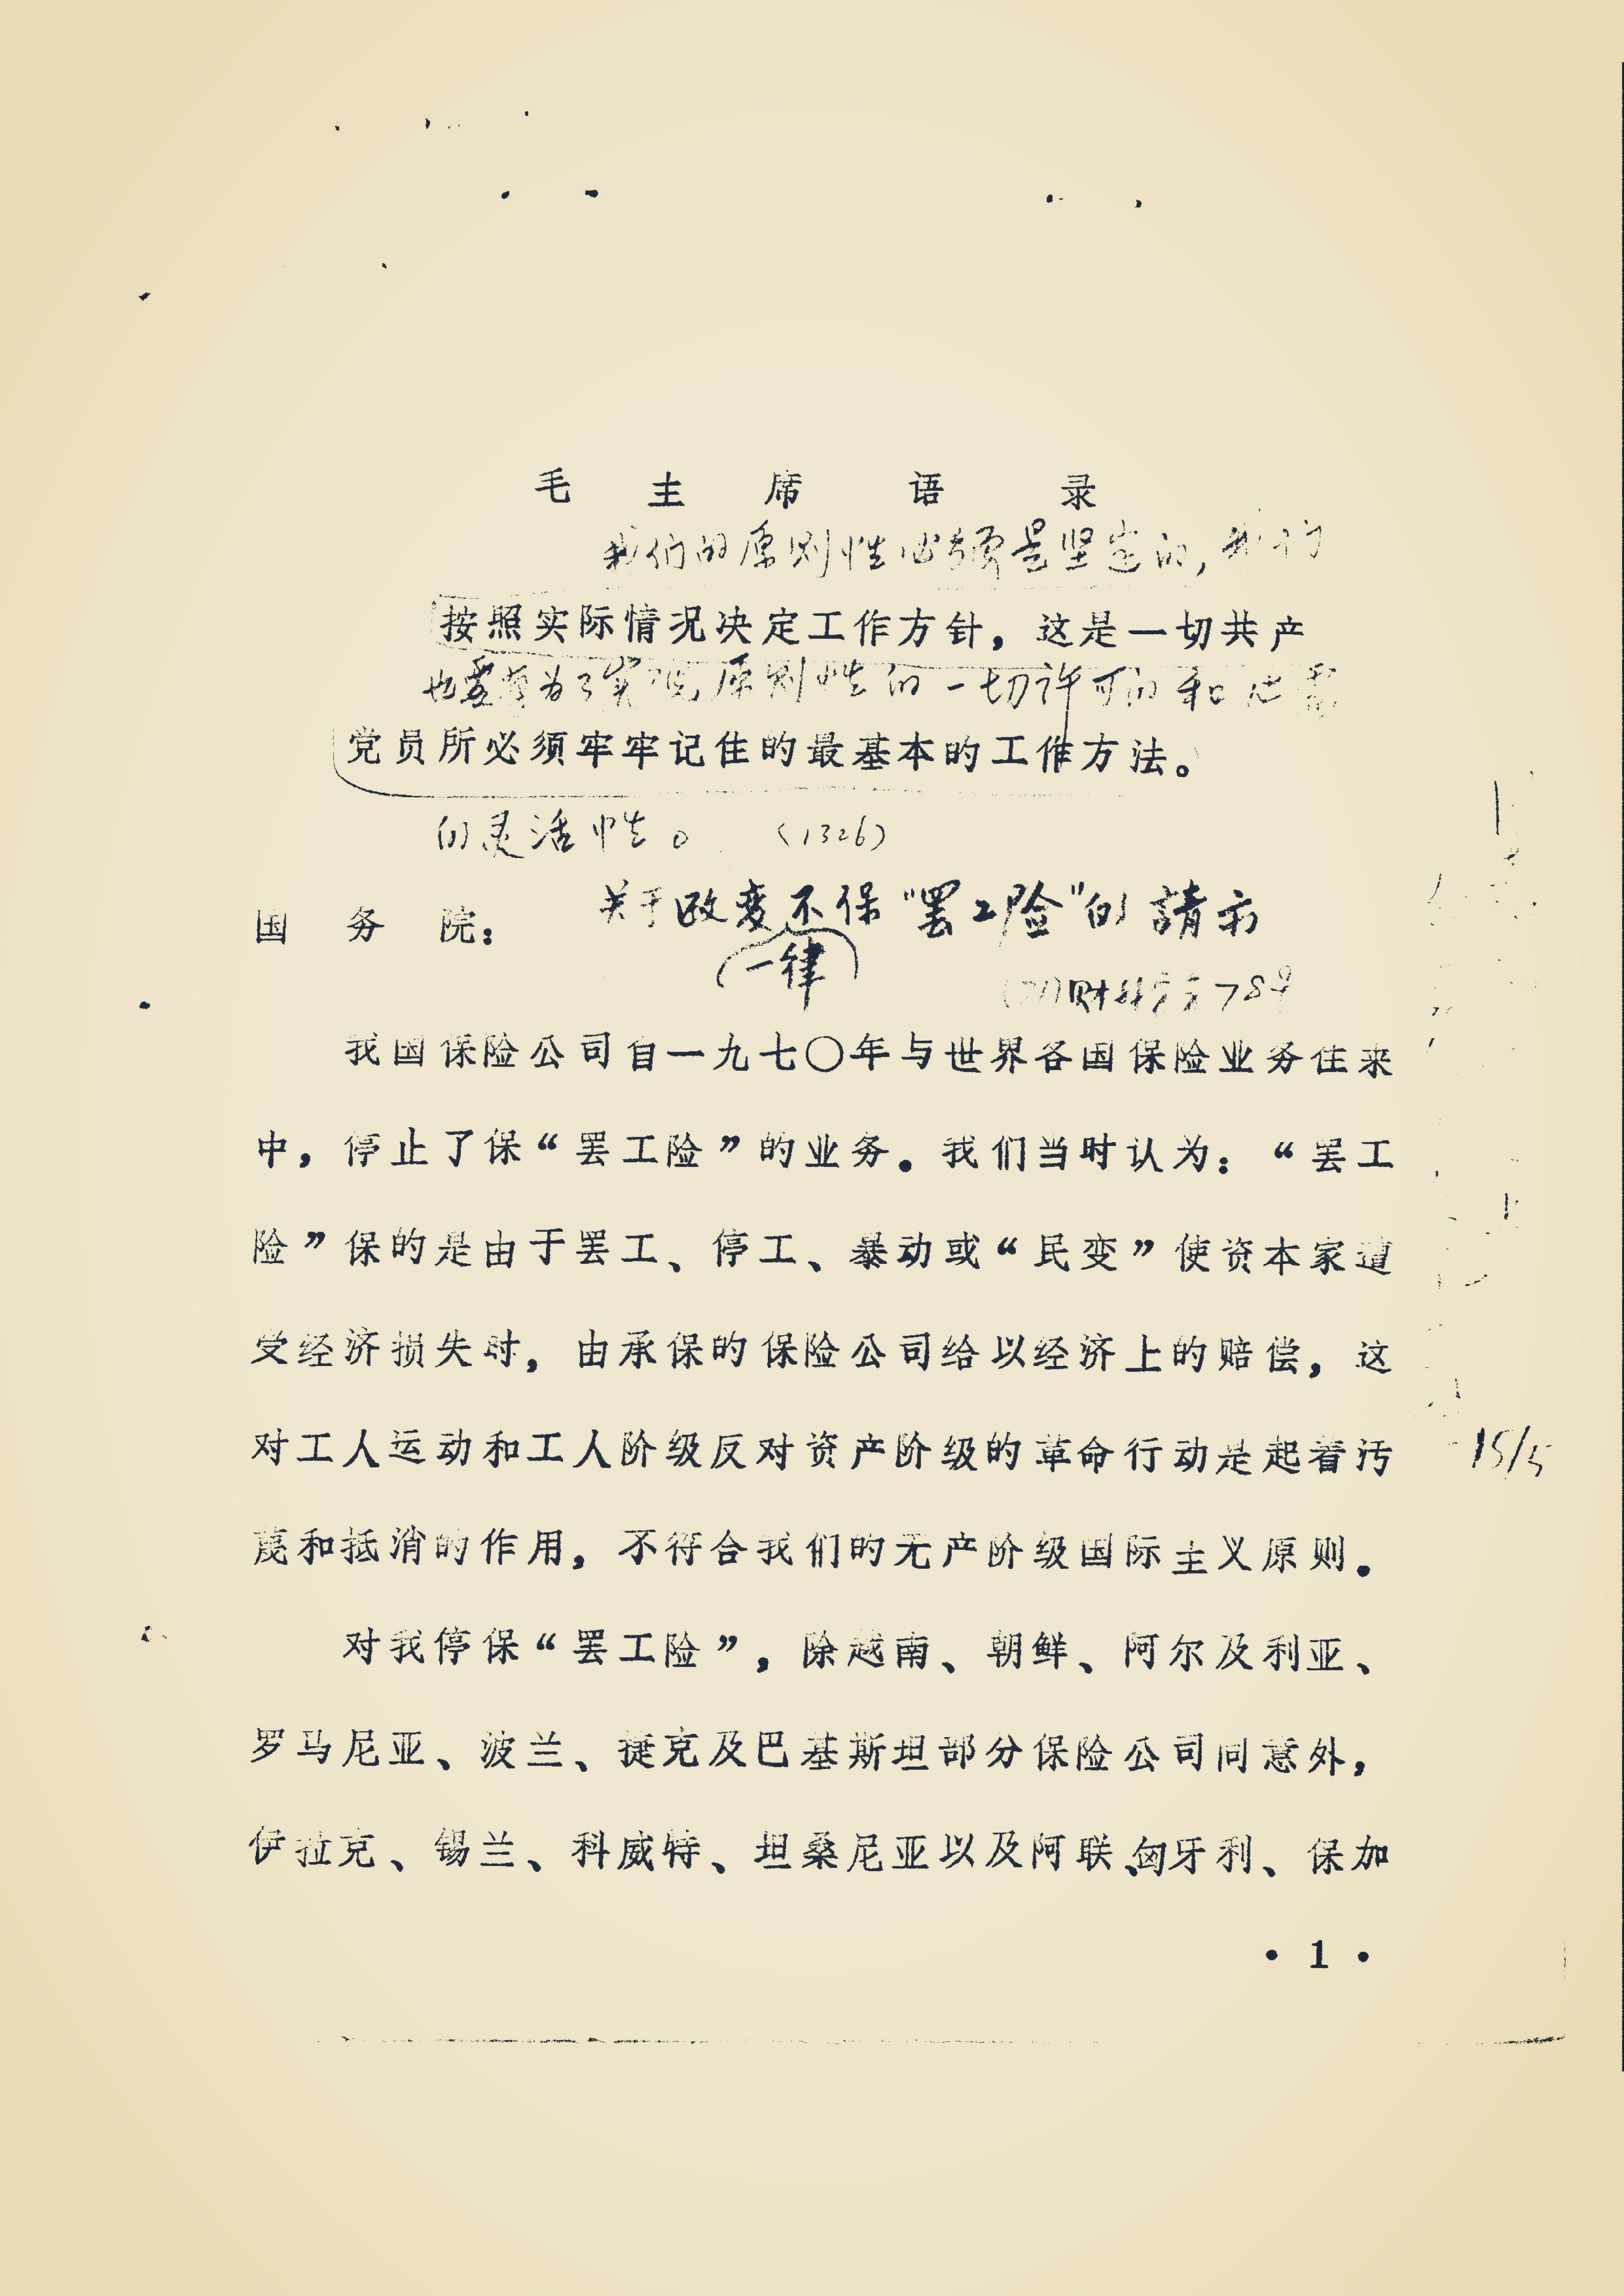 毛主席语录
我们的原则性必须是坚定的，我们
按照实际情况决定工作方针，这是一切共产
也要有为了实现原则性的一切许可的和必需
党员所必须牢牢记住的最基本的工作方法。
的灵活性。（1326）
国务院：
关于改变不保“罢工险”的請示
一律
财
我国保险公司自一九七〇年与世界各国保险业务往来
中，停止了保“罢工险”的业务。我们当时认为：“罢工
险”保的是由于罢工、停工、暴动或“民变”使资本家遭
受经济损失时，由承保的保险公司给以经济上的赔偿，这
对工人运动和工人阶级反对资产阶级的革命行动是起着污
蔑和抵消的作用，不符合我们的无产阶级国际主义原则。
对我停保“罢工险”，除越南、朝鲜、阿尔及利亚、
罗马尼亚、波兰、捷克及巴基斯坦部分保险公司同意外，
伊拉克、锡兰、科威特、坦桑尼亚以及阿联、匈牙利、保加
15/5
·1·